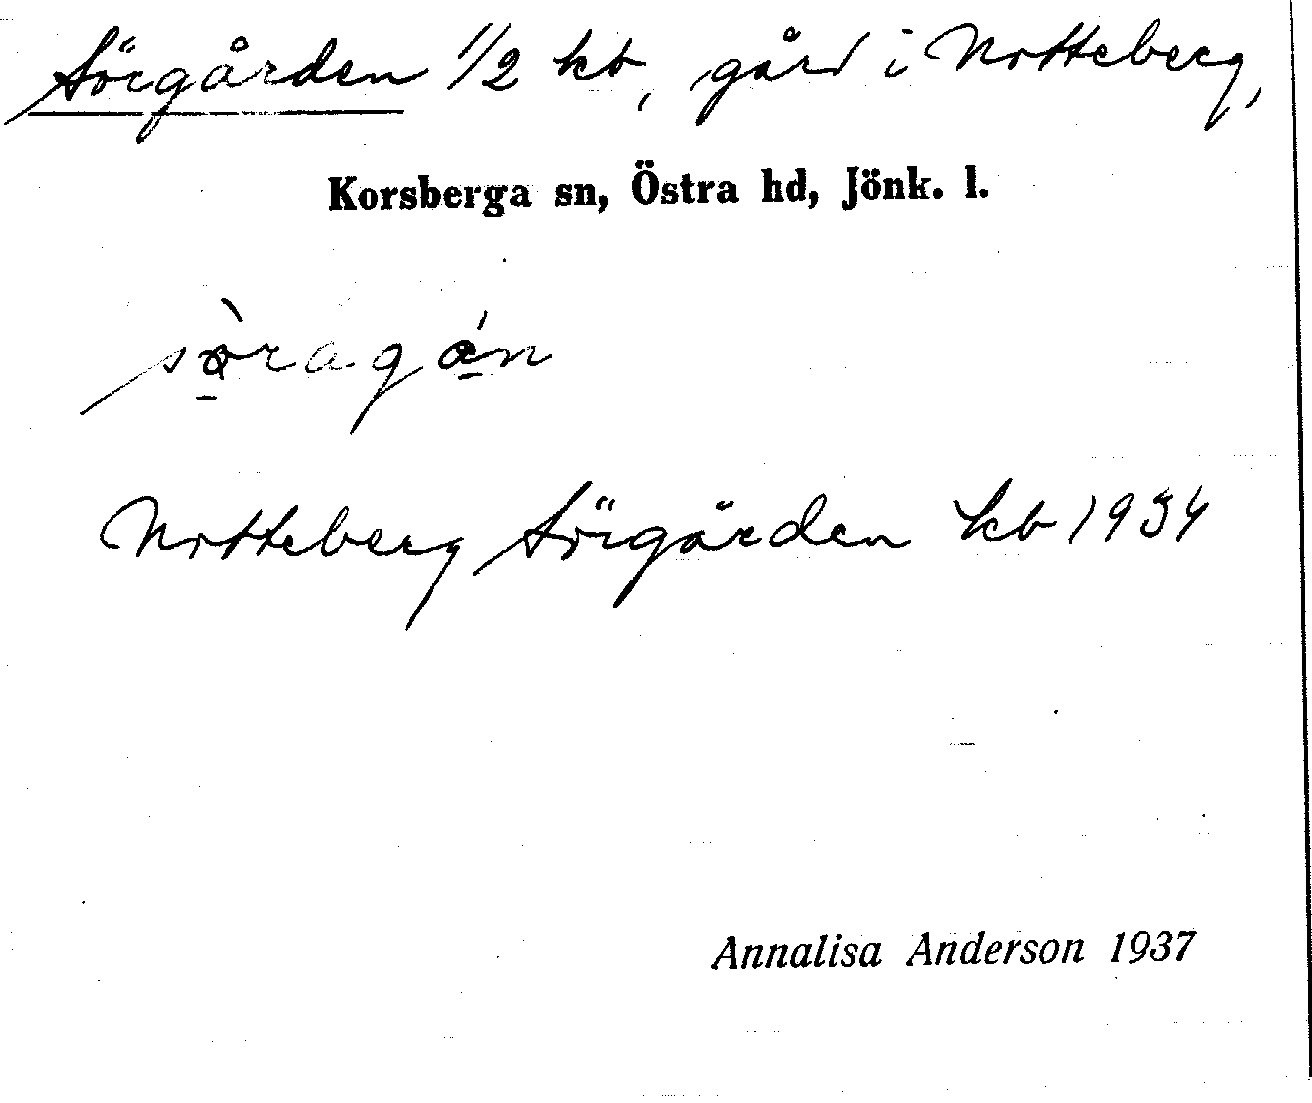 Sörgården 1/2 kb, gård i Notteberg,
Korsberga sn, Östra hd, Jönk. l.
Notteberg Sörgården kb 1934
Annalisa Anderson 1937